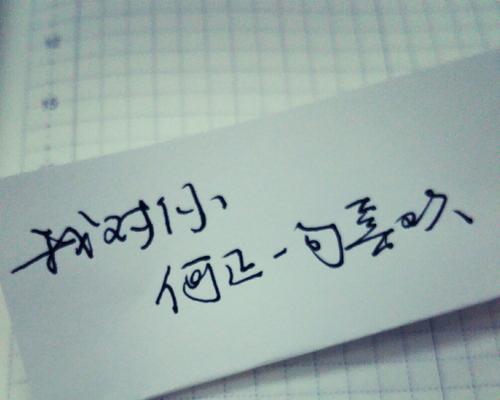 我对你、
何止一句喜欢、